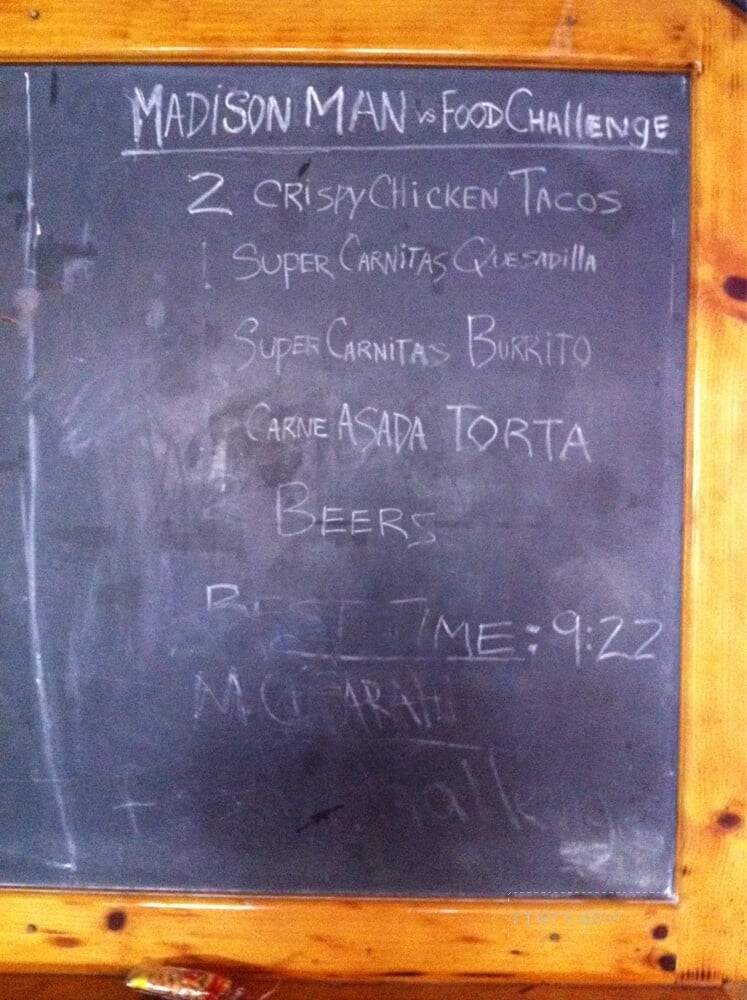 MADISON MAN vs FOOD CHALLENGE
2 CRISPY CHICKEN TACOS
1 SUPER CARNITAS QUESADILLA
SUPER CARNITAS BURRITO
CARNE ASADA TORTA
BEERS
BEST TIME: 9:22